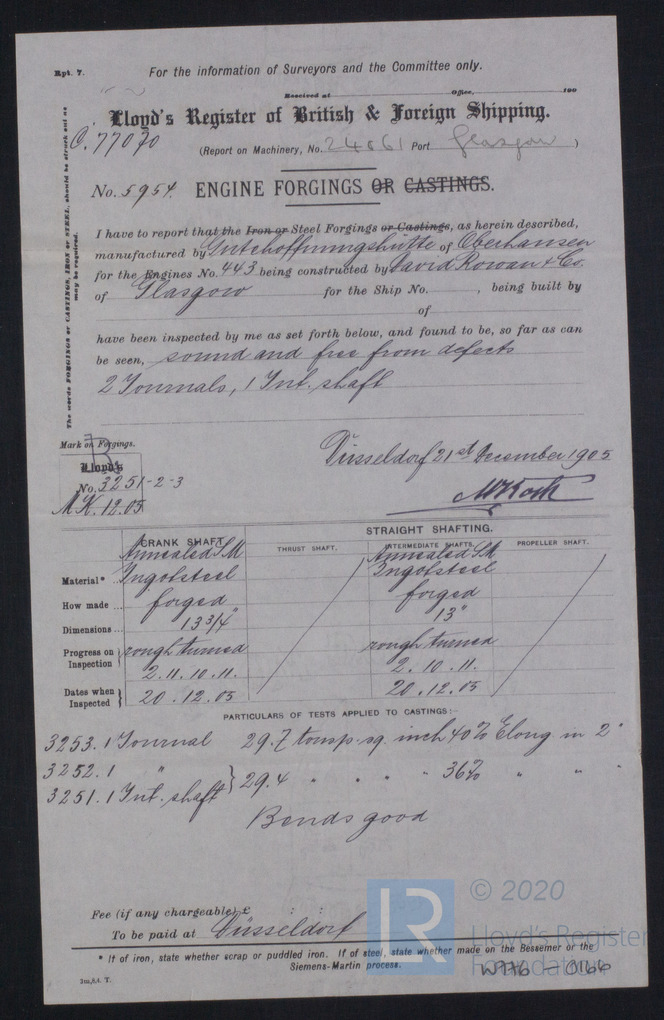 Rpt. 7.
For the information of Surveyors and the Committee only.
Received at Office, 190
Lloyd's Register of British & Foreign Shipping.
C.77070
(Report on Machinery, No. 24861 Port Glasgow)
No. 5954. ENGINE FORGINGS OR CASTINGS.
The words FORGINGS or CASTINGS, IRON or STEEL, should be struck out as may be required.
I have to report that the Iron or Steel Forgings or Castings, as herein described,
manufactured by Gutehoffnungshütte of Oberhausen
for the Engines No. 443 being constructed by David Rowan & Co.
of Glasgow for the Ship No. , being built by
of
have been inspected by me as set forth below, and found to be, so far as can
be seen, sound and free from defects
2 Journals, 1 Int. shaft
Mark on Forgings.
Düsseldorf 21st December 1905
Lloyd's
No. 3251-2-3
M.K. 12.05
STRAIGHT SHAFTING.
CRANK SHAFT. THRUST SHAFT. INTERMEDIATE SHAFTS. PROPELLER SHAFT.
Annealed S.M Annealed S.M
Material* Ingotsteel Ingotsteel
How made ... forged forged
Dimensions ... 13 3/4" 13"
Progress on Inspection rough turned rough turned
2.11.10.11. 2.10.11.
Dates when Inspected 20.12.05 20.12.05
PARTICULARS OF TESTS APPLIED TO CASTINGS:-
3253.1 Journal 29.7 tons p. sq. inch 40% Elong in 2"
3252.1 " } 29.4 " " " " 36% " " "
3251.1 Int. shaft
Bends good
Fee (if any chargeable) £ : :
To be paid at Düsseldorf
* If of iron, state whether scrap or puddled iron. If of steel, state whether made on the Bessemer or the
Siemens-Martin process.
LR
© 2020
Lloyd's Register
Foundation
W776 - 0166